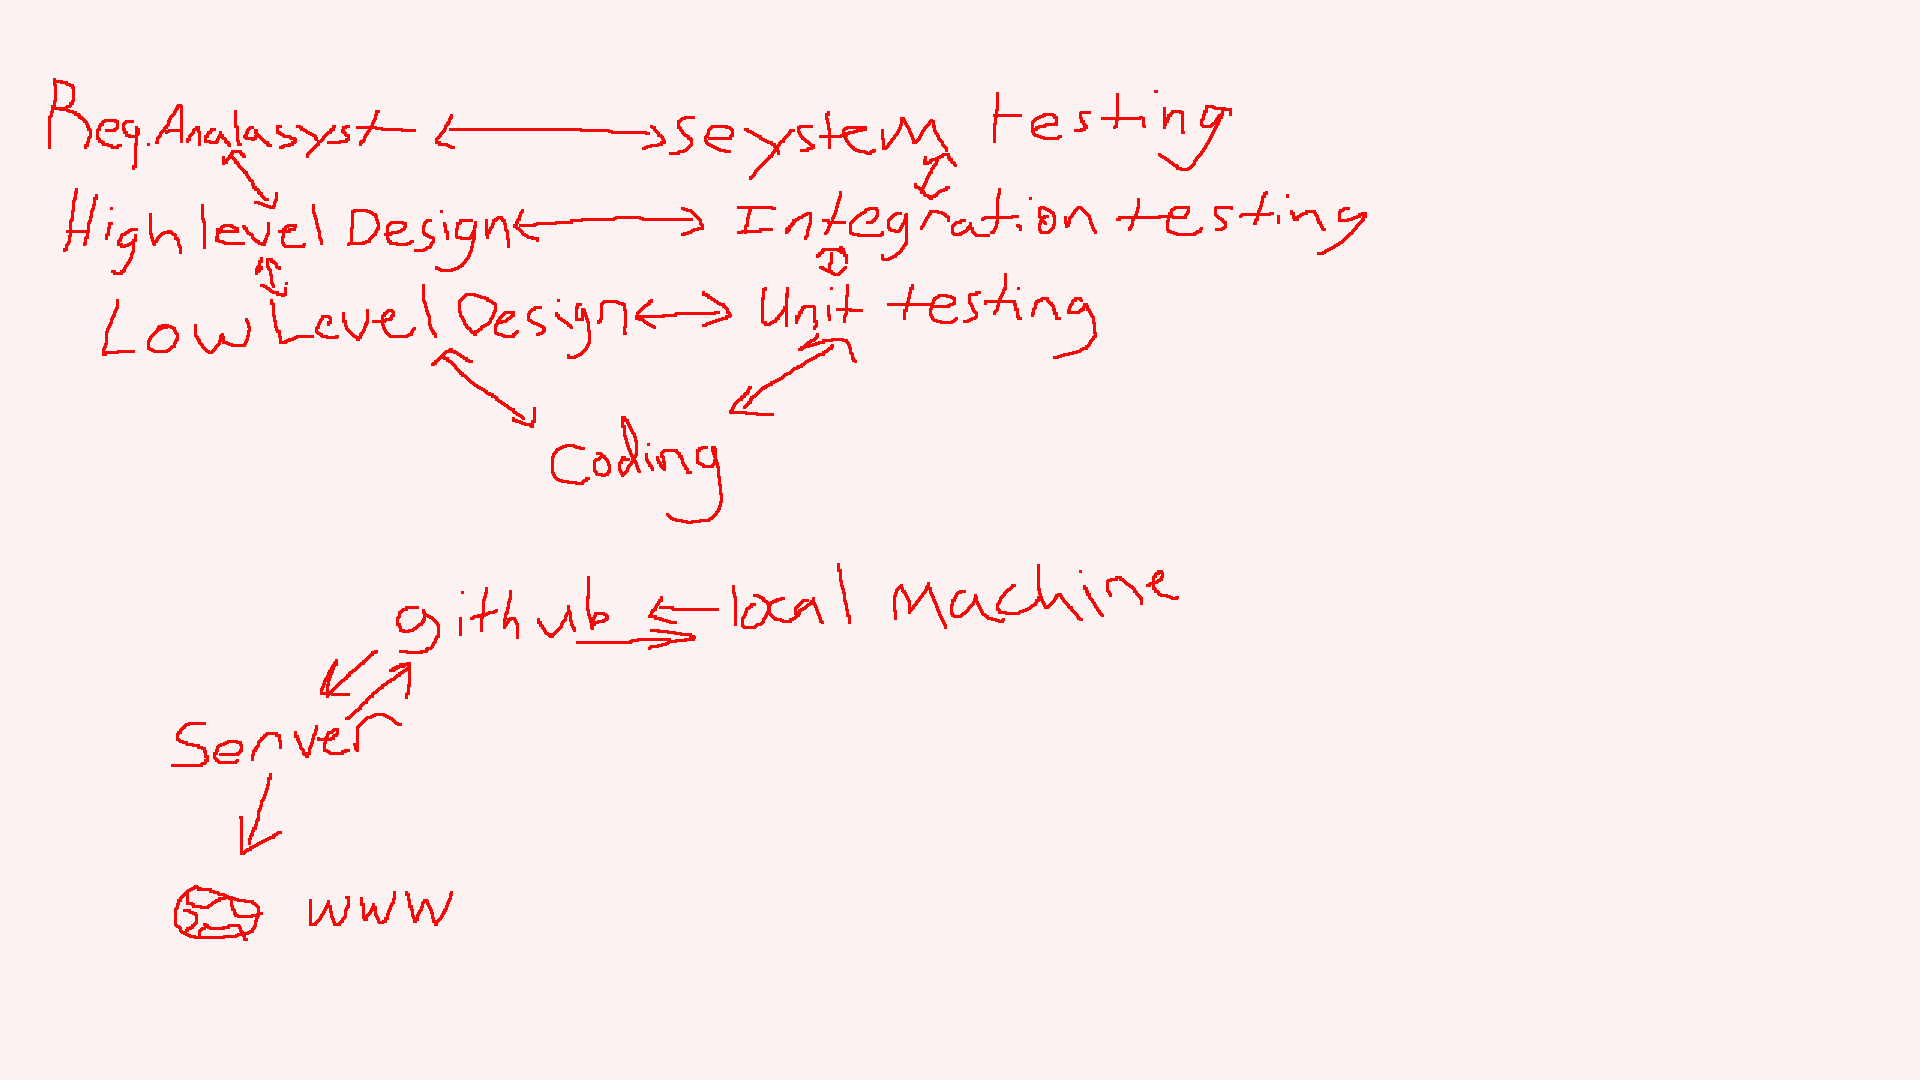 Req. Analasyst seystem testing
High level Design Integration testing
Low Level Design Unit testing
Coding
github local Machine
Server
www